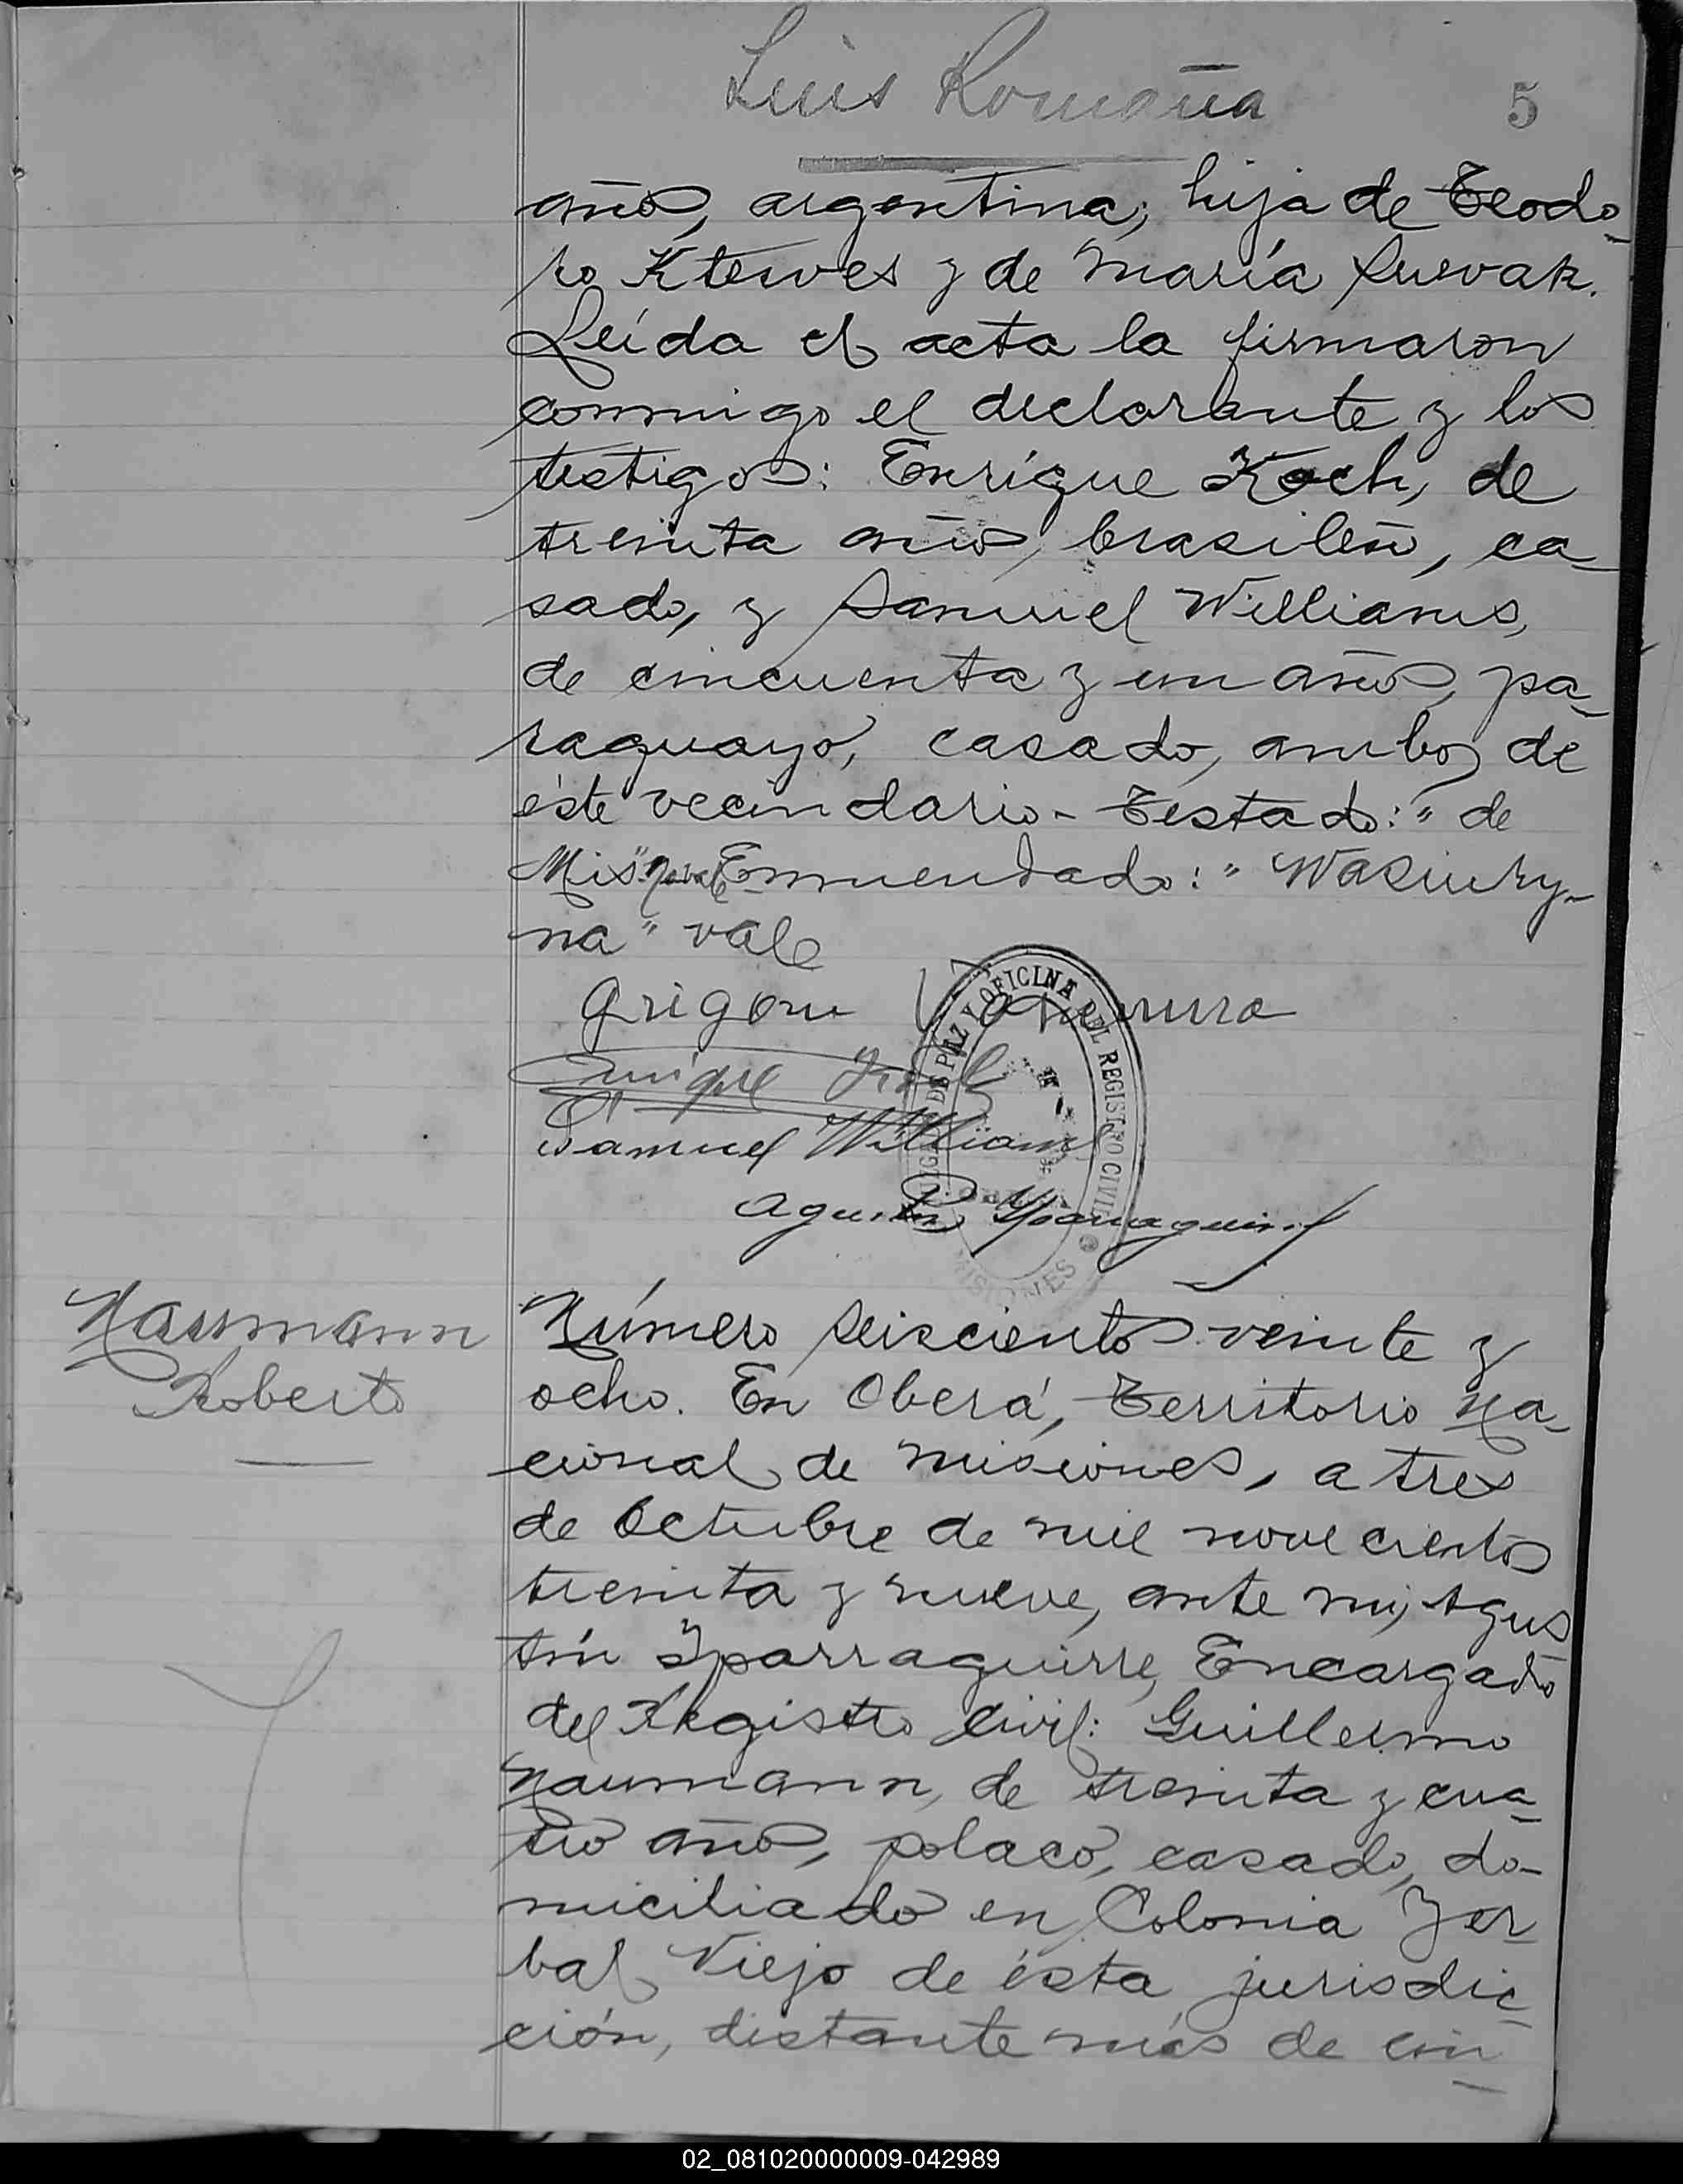 Luis Romaña
5
años, argentina; hija de Teodo-
ro Kterves y de María Survak.
Leída el acta la firmaron
conmigo el declarante y los
testigos: Enrique Koch, de
treinta años, brasileño, ca-
sado, y Samuel Williams,
de cincuenta y un años, pa-
raguayo, casado, ambos de
éste vecindario - Testado: "de
Mis" Enmendado: "Wasiury-
na" vale
Grigori
Enrique Koch
Samuel Williams
Agustín Yparraguirre
DE PAZ Y OFICINA DEL REGISTRO CIVIL
MISIONES
Naumann
Roberto
Número seiscientos veinte y
ocho. En Oberá, Territorio Na-
cional de Misiones, a tres
de Octubre de mil novecientos
treinta y nueve, ante mi, Agus
tín Yparraguirre, Encargado
del Registro Civil: Guillermo
Naumann, de treinta y cua-
tro años, polaco, casado, do-
miciliado en Colonia Yer
bal Viejo de ésta jurisdic-
ción, distante más de cin-
02_081020000009-042989